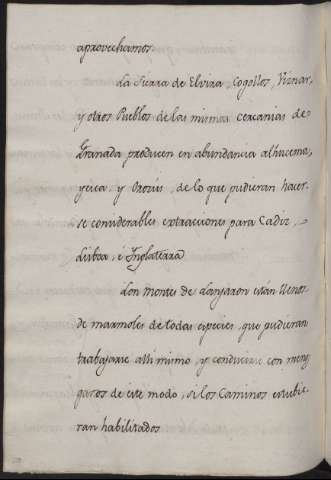 aprovechamos.
La Sierra de Elvira, Cogollos, Viznar,
y otros Pueblos de las mismas cercanias de
Granada producen en abundancia alhucema,
yesca, y Orozús, de lo que pudieran hacer-
se considerables extracciones para Cadiz,
Lisboa, é Inglaterra
Los montes de Lanjaron están llenos
de marmoles de todas especies, que pudieran
trabajarse alli mismo, y conducirse con menos
gastos de este modo, si los Caminos estubie-
ran habilitados